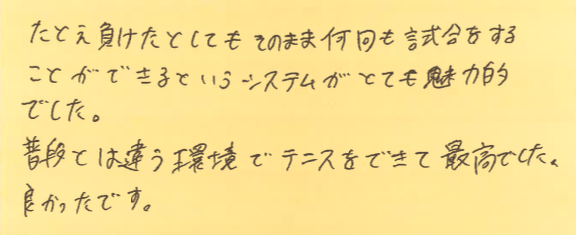 たとえ負けたとしてもそのまま何回も試合をする
ことができるというシステムがとても魅力的
でした。
普段とは違う環境でテニスをできて最高でした。
良かったです。